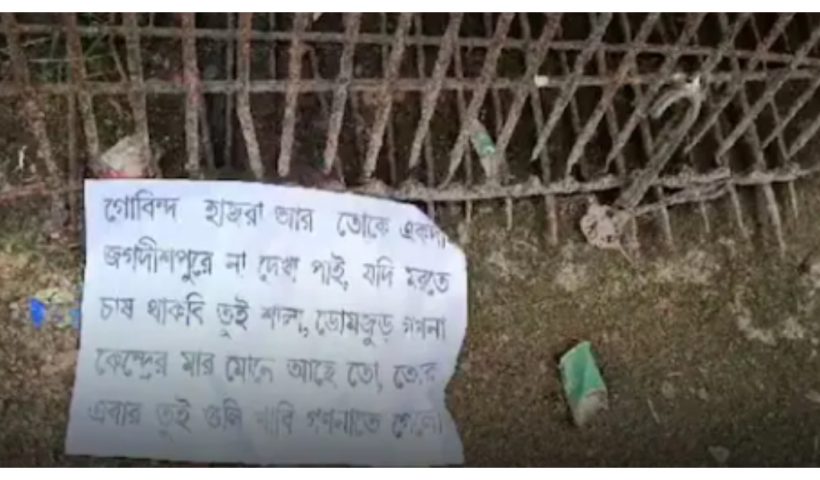 গোবিন্দ হাজরা আর তোকে একদা
জগদীশপুরে না দেখা পাই, যদি মরতে
চাষ থাকবি তুই শালা, ডোমজুড় গণনা
কেন্দ্রের মার মোনে আছে তো, তোর
এবার তুই গুলি খাবি গণনাতে গেলে